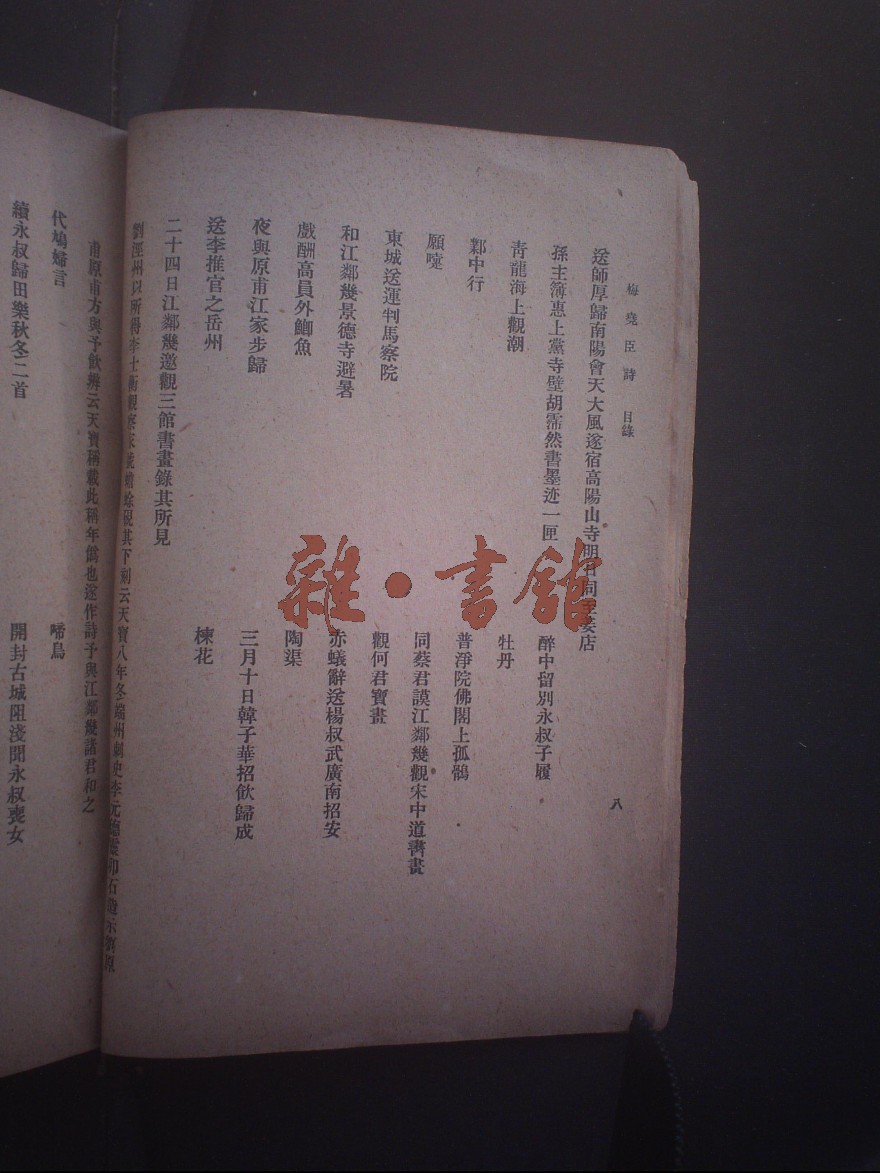 梅堯臣詩 目錄
八
送師厚歸南陽會天大風遂宿高陽山寺明日同至姜店
孫主簿惠上黨寺壁胡霈然書墨迹一匣
醉中留別永叔子履
青龍海上觀潮
牡丹
鄴中行
普淨院佛閣上孤鶻
願嚏
同蔡君謨江鄰幾觀宋中道書畫
東城送運判馬察院
觀何君寶畫
和江鄰幾景德寺避暑
赤蟻辭送楊叔武廣南招安
戲酬高員外鯽魚
陶渠
夜與原甫江家步歸
三月十日韓子華招飲歸成
送李推官之岳州
楝花
二十四日江鄰幾邀觀三館書畫錄其所見
劉涇州以所得李士衡觀察家號蟾蜍硯其下刻云天寶八年冬端州刺史李元德靈卯石造示劉原
甫原甫方與予飲辨云天寶稱載此稱年僞也遂作詩予與江鄰幾諸君和之
代鳩婦言
啼鳥
續永叔歸田樂秋冬二首
開封古城阻淺聞永叔喪女
雜·書館